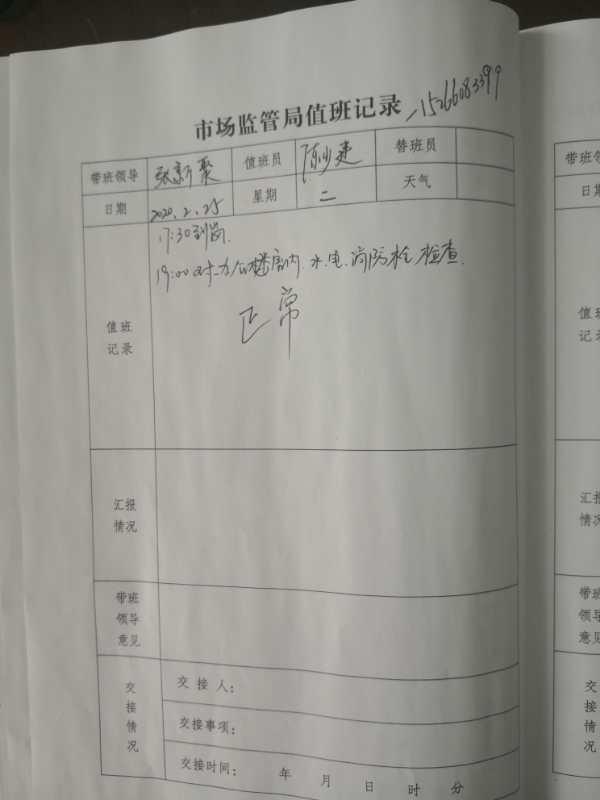 市场监管局值班记录 15266083399
带班领导 张新聚 值班员 陈少建 替班员
日期 2020.2.25 星期 二 天气
17:30到岗.
19:00对办公楼房内.水.电.消防栓检查.
正常
值班
记录
汇报
情况
带班
领导
意见
交接情况
交接人:
交接事项:
交接时间: 年 月 日 时 分
带班领
日期
值班
记录
汇报
情况
带班
领导
意见
交
接
情
况